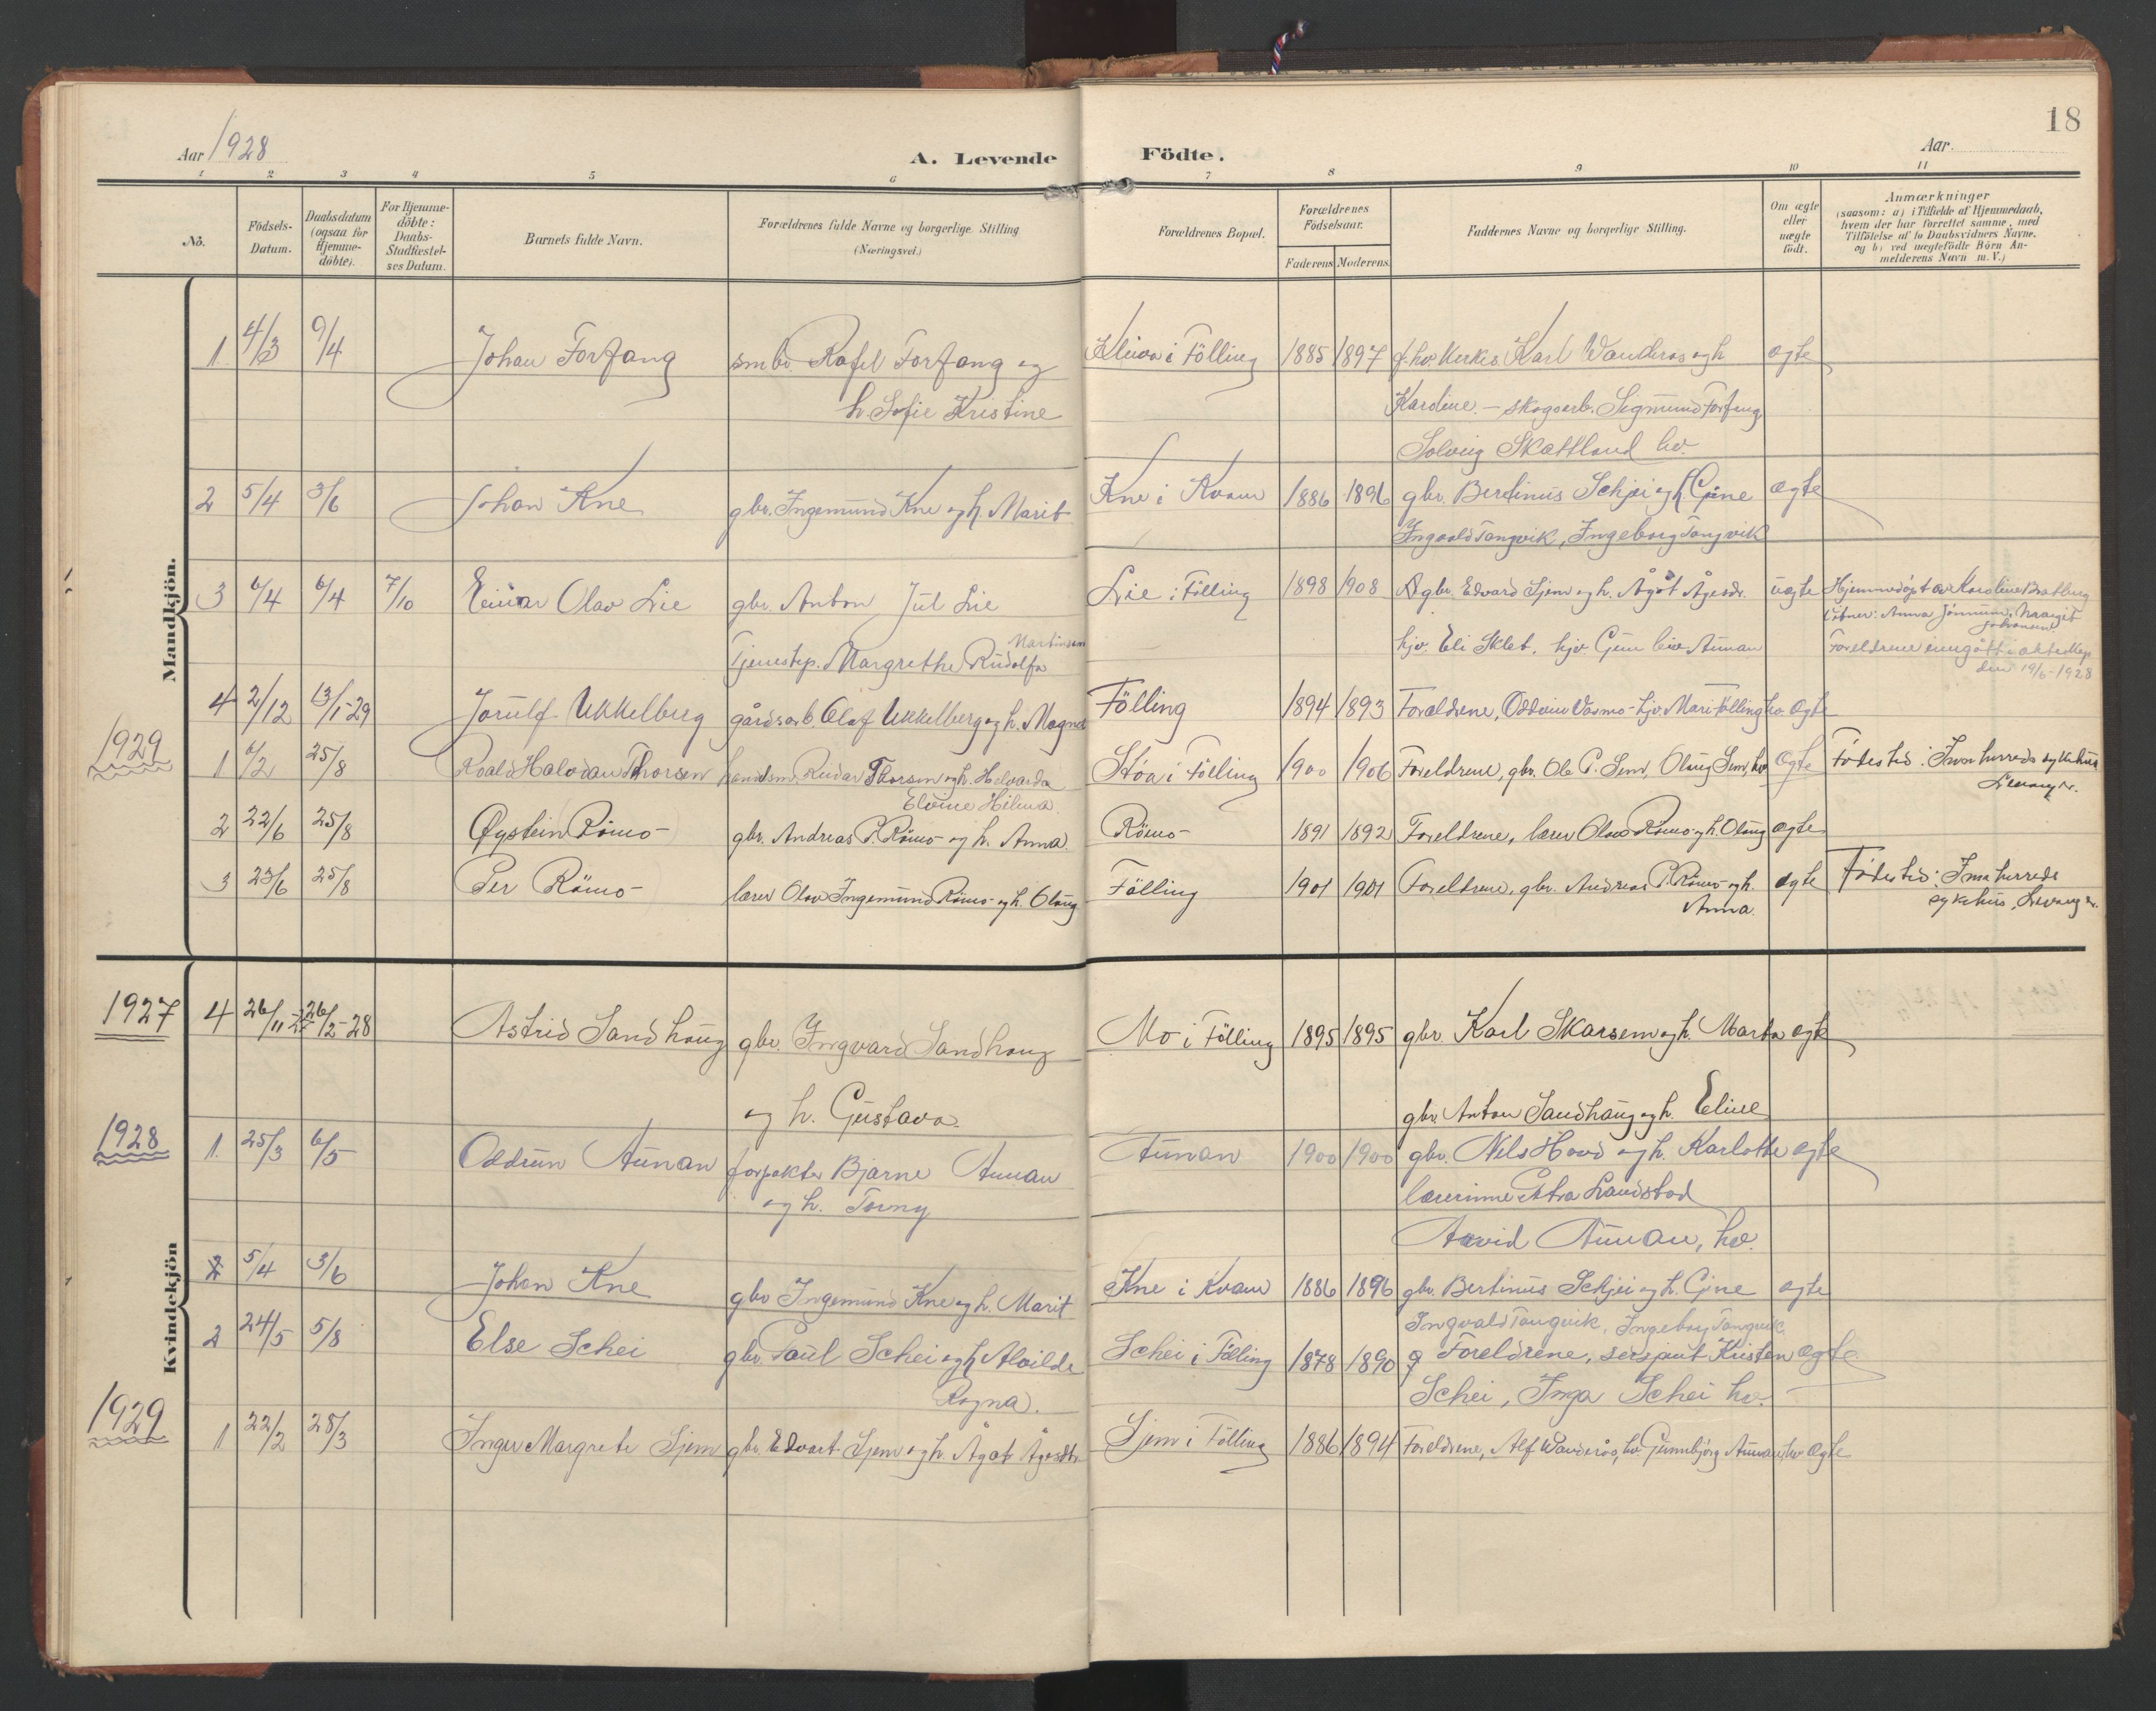 18
Aar 1928
A. Levende Födte.
Aar
1 2 3 4 5 6 7 8 9 10 11
No.
Födsels-Datum.
Daabsdatum (ogsaa for Hjemme-döbte).
For Hjemme-döbte: Daabs-Stadfæstel-ses Datum.
Barnets fulde Navn.
Forældrenes fulde Navne og borgerlige Stilling (Næringsvei.)
Forældrenes Bopæl.
Forældrenes Födselsaar.
Faderens Moderens
Faddernes Navne og borgerlige Stilling.
Om ægte eller uægte födt.
Anmærkninger
(saasom: a) i Tilfælde af Hjemmedaab,
hvem der har forrettet samme, med
Tilföielse af to Daabsvidners Navne.
og b) ved uægtefödte Börn An-
melderens Navn m. V.)
Mandkjön.
1 4/3 9/4 Johan Forfang smbr. Rafel Forfang og i Fölling 1885 1897 Karl Wanderås og h ægte
h. Sofie Kristine Karoline. – skogsarb. Sigmund Forfang
Solveig Skatland hv.
2 5/4 3/6 Johan Kne gbr. Ingemund Kne og h. Marit Kne i Kvam 1886 1896 gbr. Bertinus Schjei og h. Gine ægte
Ingvald Tangvik, Ingeborg Tangvik
3 6/4 6/4 7/10 Einar Olav Lie gbr. Anton Jul Lie Lie i Fölling 1898 1908 gbr. Edvard Sjem og h. Ågot Ågesdr. uegte Hjemmedöpt av Karoline Bratberg
Tjenestep. Margrethe Rudolfa Martinsen hjv. Eli Sklet, hjv. Aunan Foreldrene inngått i ekteskap
den 19/6-1928
4 2/12 13/1-29 Jorulf Ukkelberg gårdsarb Olaf Ukkelberg og h. Magna Fölling 1894 1893 Foreldrene, Oddvin Vasmo - hjv. Mari Fölling hv. ægte
1929 1 6/2 25/8 Roald Halvdan Thorsen handelsm. Reidar Thorsen og h. Helvarda Stöa i Fölling 1900 1906 Foreldrene, gbr. Ole P. Sem, Olaug Sem, hv ægte Födested: Innherreds sykehus
Hilma Levanger.
2 22/6 25/8 Øystein Römo gbr. Andreas P. Römo og h. Anna. Römo 1891 1892 Foreldrene, lærer Olav Römo og h. Olaug ægte
3 23/6 25/8 Per Römo lærer Olav Ingemund Römo og h. Olaug Fölling 1901 1901 Foreldrene, gbr. Andreas P. Römo og h. ægte Födested: Innherreds
Anna. sykehus, Levanger.
Kvindekjön
1927 4 26/11-27 26/2-28 Astrid Sandhaug gbr. Ingvard Sandhaug Mo i Fölling 1895 1895 gbr. Karl Skarsem og h. Marta ægte
og h. Gustava. gbr. Anton Sandhaug og h. Eline
1928 1. 25/3 6/5 Oddrun Aunan forpakter Bjarne Aunan Aunan 1900 1900 gbr. Nils Hovd og h. Karlotte ægte
og h. Torny lærerinne Petra Landstad
Arvid Aunan, hv.
2 5/4 3/6 Johan Kne gbr Ingemund Kne og h. Marit Kne i Kvam 1886 1896 gbr. Bertinus Schjei og h. Gine ægte
Ingvald Tangvik, Ingeborg Tangvik.
2 24/5 5/8 Else Schei gbr. Paul Schei og h. Alvilde Schei i Fölling 1878 1890 Foreldrene, sersjant Kristen ægte
Ragna. Schei, Inga Schei hv.
1929 1 22/2 28/3 Inger Margrete Sjem gbr. Edvart Sjem og h. Ågot Ågesdtr. Sjem i Fölling 1886 1894 Foreldrene, Alf Wanderås, hv. Gunnbjörg Aunan, hv ægte